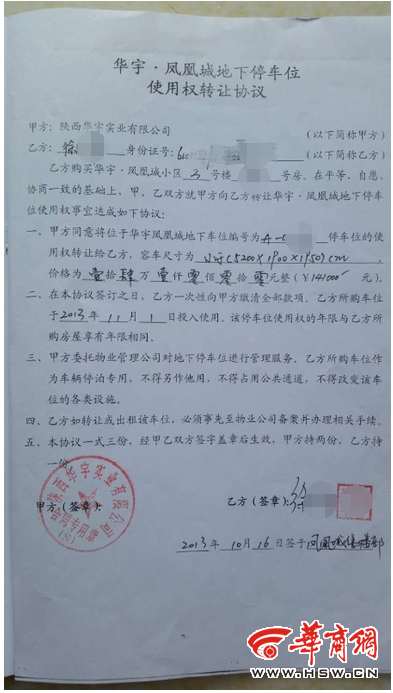 华宇·凤凰城地下停车位
使用权转让协议
甲方：陕西华宇实业有限公司 （以下简称甲方）
乙方：徐 身份证号：610 （以下简称乙方）
乙方购买华宇·凤凰城小区 3 号楼 号房。在平等、自愿、
协商一致的基础上，甲、乙双方就甲方向乙方转让华宇·凤凰城地下停车
位使用权事宜达成如下协议：
一、甲方同意将位于华宇凤凰城地下车位编号为 A- 停车位的使
用权转让给乙方，容车尺寸为 (5200×1900×1950)cm，
价格为 壹拾肆万壹仟零佰零拾零元整（￥141000 元）。
二、在本协议签订之日，乙方一次性向甲方缴清全部款项。乙方所购车位
于 2013 年 11 月 1 日投入使用。该停车位使用权的年限与乙方所
购房屋享有年限相同。
三、甲方委托物业管理公司对地下停车位进行管理服务。乙方所购车位作
为车辆停泊专用，不得另作他用，不得占用公共通道，不得改变该车
位的各类设施。
四、乙方如转让或出租该车位，必须事先至物业公司备案并办理相关手续。
五、本协议一式三份，经甲乙双方签字盖章后生效，甲方持两份，乙方持
一份。
陕西华宇实业有限公司
合同专用章
(S)
甲方（签章）：
乙方（签章）：
2013 年 10 月 16 日签于凤凰城售楼部
华商网
WWW.HSW.CN